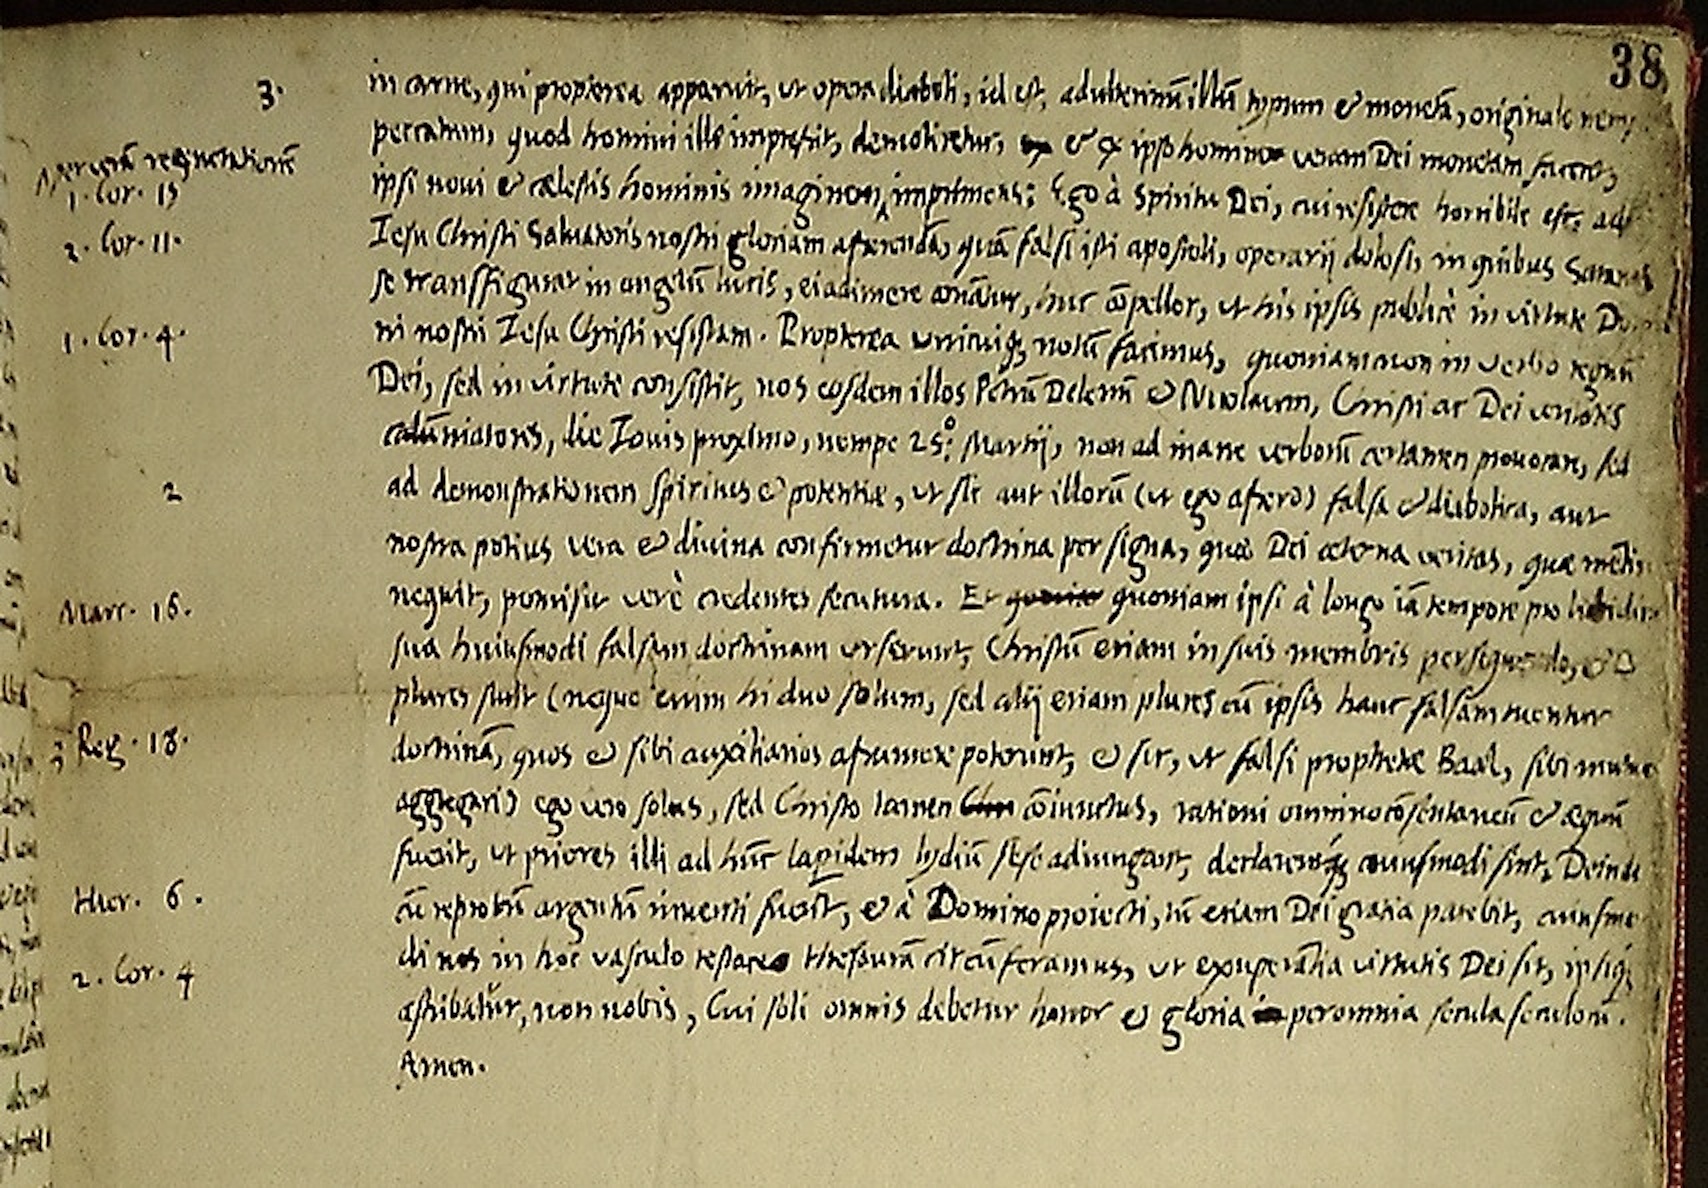 38
3.
in carne, qui propterea apparuit, ut opera diaboli, id est, adulterinũ illũ typum & monetã, originale
peccatum, quod homini ille impressit, demoliretur, & ex ipso homine veram Dei monetam faceret,
^per verã regenerationẽ
1. Cor. 15
ipsi novi & cælestis hominis imaginem^ imprimens: Ego à Spiritu Dei, cui resistere horribile est, ad
2. Cor. 11.
Iesu Christi Salvatoris nostri gloriam asserendã, quã falsi isti apostoli, operarij dolosi, in quibus Satanas
se transfigurat in angelũ lucis, ei adimere conãtur, huc cõpellor, ut his ipsis publicè in virtute
1. Cor. 4.
ni nostri Iesu Christi resistam. Propterea unicuiq; notũ facimus, quoniam non in verbo regnũ
Dei, sed in virtute consistit, nos eosdem illos Petrũ & Nicolaum, Christi ac Dei
calũniatores, die Iovis proximo, nempe 25.º Martij, non ad inane verborũ certamen provocare, sed
2
ad demonstrationem spiritus & potentiæ, ut sic aut illorũ (ut ego assero) falsa & diabolica, aut
nostra potius vera & divina confirmetur doctrina per signa, quæ Dei æterna veritas, quæ
Marc. 16.
nequit, promisit verè credentes secutura. Et quoniam ipsi à longo iã tempore pro
sua huiusmodi falsam doctrinam asserunt, Christũ etiam in suis membris persequendo, &
plures sunt (neque enim hi duo solum, sed alij etiam plures cũ ipsis hanc falsam tuentur
3 Reg. 18.
doctrinã, quos & sibi auxiliarios assumere poterunt, & sic, ut falsi prophetæ Baal, sibi
aggregari) ego vero solus, sed Christo tamen cõiunctus, rationi omnino cõsentaneũ & æquũ
fuerit, ut priores illi ad hũc lapidem lydiũ sese adiungant, declarentq; cuiusmodi sint. Deinde
Hier. 6.
cũ reprobũ argentũ inventi fuerĩt, & à Domino proiecti, tũ etiam Dei gratia patebit, cuiusmo
2. Cor. 4
di nos in hoc vasculo testaceo thesaurũ circũferamus, ut exuperãtia virtutis Dei sit, ipsiq;
ascribatur, non nobis, Cui soli omnis debetur honor & gloria per omnia secula seculorũ.
Amen.